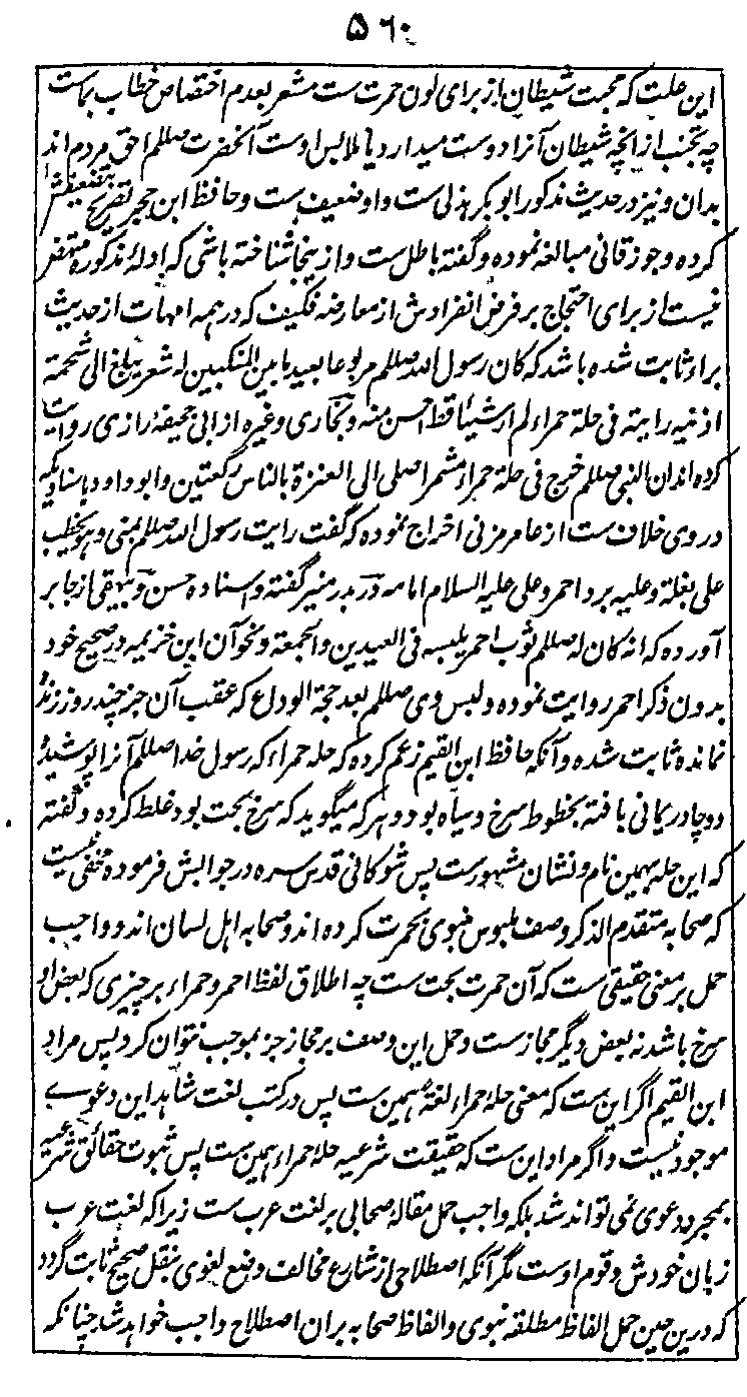 ۵۶۰
این علت که محبت شیطان از برای لون حمرت ست مشعر بعدم اختصاص خطاب بماست
چه تجنب از انچه شیطان آنرا دوست میدارد یا ملابس اوست آنحضرت صللم احق مردم اند
بدان و نیز در حدیث مذکور ابو بکر هذلی ست و او ضعیف ست و حافظ ابن حجر تصریح بتضعیفش
کرده و جوزقانی مبالغه نموده و گفته باطل ست و ازینجا شناخته باشی که ادلۀ مذکوره منتفر
نیست از برای احتجاج بر فرض انفرادش از معارضه فکیف که در همه امهات از حدیث
براء ثابت شده باشد که کان رسول الله صللم مربوعا بعید ما بین المنکبین له شعر یبلغ الی شحمة
اذنیه رایته فی حلة حمراء لم ار شیئا قط احسن منه و بخاری و غیره از ابی جحیفه رازی روایت
کرده اند ان النبی صللم خرج فی حلة حمراء مشمرا صلی الی العنزة بالناس رکعتین و ابو داود باسنادیکه
دروی خلاف ست از عامر مزنی اخراج نموده که گفت رایت رسول الله صللم بمنی وهو یخطب
علی بغلة وعلیه برد احمر وعلی علیه السلام امامه در بدر منیر گفته واسناده حسن و بیهقی از جابر
آورده که انه کان له صللم ثوب احمر یلبسه فی العیدین والجمعة و نحو آن ابن خزیمه در صحیح خود
بدون ذکر احمر روایت نموده و لبس وی صللم بعد حجة الوداع که عقب آن جز چند روز زنده
نمانده ثابت شده و آنکه حافظ ابن القیم زعم کرده که حله حمراء که رسول خدا صللم آنرا پوشیده
دو چادر یمانی بافته بخطوط سرخ و سیاه بود و هر که میگوید که سرخ بحت بود غلط کرده و گفته
که این حله بهمین نام و نشان مشهورست پس شوکانی قدس سره در جوابش فرموده مخفی نیست
که صحابه متقدم الذکر وصف ملبوس نبوی بحمرت کرده اند و صحابه اهل لسان اند و واجب
حمل بر معنی حقیقی ست که آن حمرت بحت ست چه اطلاق لفظ احمر و حمراء بر چیزی که بعض او
سرخ باشد نه بعض دیگر مجازست و حمل این وصف بر مجاز جز بموجب نتوان کرد پس مراد
ابن القیم اگر این ست که معنی حله حمراء لغة همین ست پس در کتب لغت شاهد این دعوے
موجود نیست و اگر مراد این ست که حقیقت شرعیه حله حمراء همین ست پس ثبوت حقائق شرعیه
بمجرد دعوی نمی تواند شد بلکه واجب حمل مقاله صحابی بر لغت عرب ست زیرا که لغت عرب
زبان خودش و قوم اوست مگر آنکه اصطلاحی از شارع مخالف وضع لغوی بنقل صحیح ثابت گردد
که درین حین حمل الفاظ مطلقه نبوی و الفاظ صحابه بران اصطلاح واجب خواهد شد چنانکه